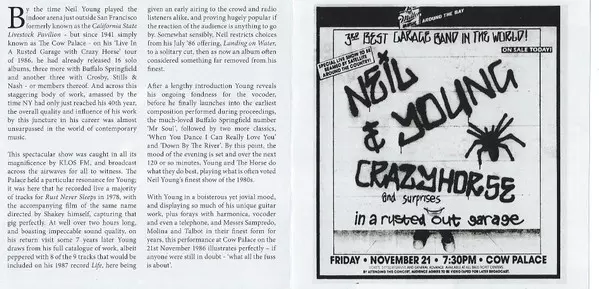 By the time Neil Young played the
indoor arena just outside San Francisco
formerly known as the California State
Livestock Pavilion - but since 1941 simply
known as The Cow Palace - on his 'Live In
A Rusted Garage with Crazy Horse' tour
of 1986, he had already released 16 solo
albums, three more with Buffalo Springfield
and another three with Crosby, Stills &
Nash - or members thereof. And across this
staggering body of work, amassed by the
time NY had only just reached his 40th year,
the overall quality and influence of his work
by this juncture in his career was almost
unsurpassed in the world of contemporary
music.
This spectacular show was caught in all its
magnificence by KLOS FM, and broadcast
across the airwaves for all to witness. The
Palace held a particular resonance for Young;
it was here that he recorded live a majority
of tracks for Rust Never Sleeps in 1978, with
the accompanying film of the same name
directed by Shakey himself, capturing that
gig perfectly. At well over two hours long,
and boasting impeccable sound quality, on
his return visit some 7 years later Young
draws from his full catalogue of work, albeit
peppered with 8 of the 9 tracks that would be
included on his 1987 record Life, here being
given an early airing to the crowd and radio
listeners alike, and proving hugely popular if
the reaction of the audience is anything to go
by. Somewhat sensibly, Neil restricts choices
from his July '86 offering, Landing on Water,
to a solitary cut, then as now an album often
considered something far removed from his
finest.
After a lengthy introduction Young reveals
his ongoing fondness for the vocoder,
before he finally launches into the earliest
composition performed during proceedings,
the much-loved Buffalo Springfield number
'Mr Soul', followed by two more classics,
'When You Dance I Can Really Love You'
and 'Down By The River'. By this point, the
mood of the evening is set and over the next
120 or so minutes, Young and The Horse do
what they do best, playing what is often voted
Neil Young's finest show of the 1980s.
With Young in a boisterous yet jovial mood,
and displaying so much of his unique guitar
work, plus forays with harmonica, vocoder
and even a telephone, and Messrs Sampredo,
Molina and Talbot in their finest form for
years, this performance at Cow Palace on the
21st November 1986 illustrates perfectly – if
anyone were still in doubt - 'what all the fuss
is about'.
AROUND THE BAY
3RD BEST GARAGE BAND IN THE WORLD!
ON SALE TODAY!
SPECIAL LIVE SHOW TO BE
BEAMED BY SATELLITE
AROUND THE COUNTRY!
NEIL
YOUNG
&
CRAZYHORSE
and surprises
in a rusted out garage
FRIDAY • NOVEMBER 21 • 7:30PM • COW PALACE
BY ATTENDING THIS CONCERT, AUDIENCE AGREES TO BE VIDEO TAPED FOR LATER BROADCAST.